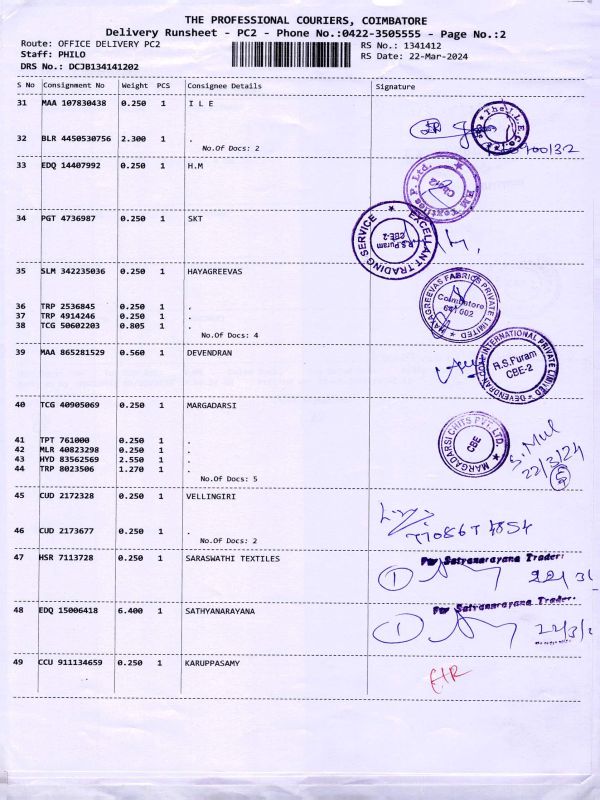 THE PROFESSIONAL COURIERS, COIMBATORE
Delivery Runsheet - PC2 - Phone No.:0422-3505555 - Page No.:2
Route: OFFICE DELIVERY PC2 RS No.: 1341412
Staff: PHILO RS Date: 22-Mar-2024
DRS No.: DCJB134141202
S No Consignment No Weight PCS Consignee Details Signature
31 MAA 107830438 0.250 1 I L E
The I.L.E.Co.
32 BLR 4450530756 2.300 1 .
No.Of Docs: 2
33 EDQ 14407992 0.250 1 H.M
34 PGT 4736987 0.250 1 SKT
EXCELLANT TRADING SERVICE
R.S.Puram
CBE-2
35 SLM 342235036 0.250 1 HAYAGREEVAS
HAYAGREEVAS FABRICS PRIVATE LIMITED
Coimbatore
641 002
36 TRP 2536845 0.250 1 .
37 TRP 4914246 0.250 1 .
38 TCG 50602203 0.805 1 .
No.Of Docs: 4
39 MAA 865281529 0.560 1 DEVENDRAN
INTERNATIONAL PRIVATE LIMITED
R.S.Puram
CBE-2
40 TCG 40905069 0.250 1 MARGADARSI
MARGADARSI CHITS PVT. LTD.
CBE
22/3/24
5
41 TPT 761000 0.250 1 .
42 MLR 40823298 0.250 1 .
43 HYD 83562569 2.550 1 .
44 TRP 8023506 1.270 1 .
No.Of Docs: 5
45 CUD 2172328 0.250 1 VELLINGIRI
46 CUD 2173677 0.250 1 .
No.Of Docs: 2
47 HSR 7113728 0.250 1 SARASWATHI TEXTILES
For Satyanarayana Trader:
1
48 EDQ 15006418 6.400 1 SATHYANARAYANA
For Satyanarayana Trader:
1
49 CCU 911134659 0.250 1 KARUPPASAMY